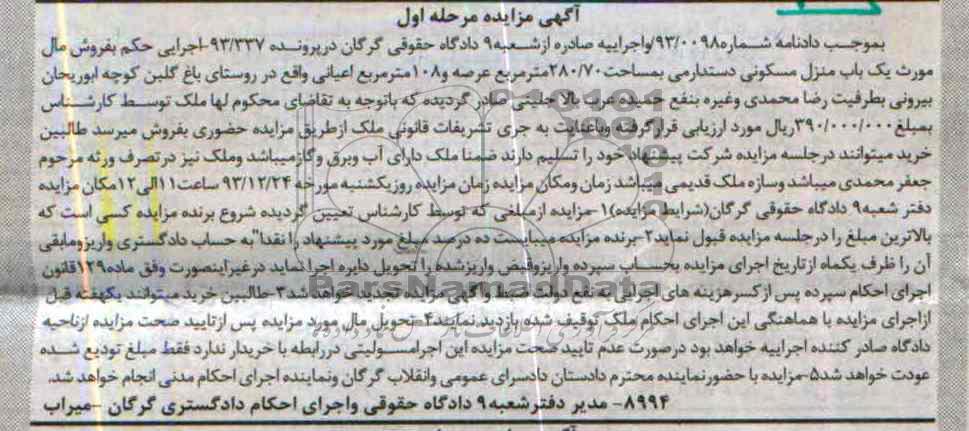 آگهی مزایده مرحله اول
بموجب دادنامه شماره ۹۳/۰۰۹۸/واجراییه صادره ازشعبه۹ دادگاه حقوقی گرگان درپرونده ۹۳/۳۳۷-اجرایی حکم بفروش مال
مورث یک باب منزل مسکونی دستدارمی بمساحت۲۸۰/۷۰مترمربع عرصه و۱۰۸مترمربع اعیانی واقع در روستای باغ گلبن کوچه ابوریحان
بیرونی بطرفیت رضا محمدی وغیره بنفع حمیده عرب بالا جلینی صادر گردیده که باتوجه به تقاضای محکوم لها ملک توسط کارشناس
بمبلغ۳۹۰/۰۰۰/۰۰۰ریال مورد ارزیابی قرارگرفته وباعنایت به جری تشریفات قانونی ملک ازطریق مزایده حضوری بفروش میرسد طالبین
خرید میتوانند درجلسه مزایده شرکت پیشنهاد خود را تسلیم دارند ضمنا ملک دارای آب وبرق وگازمیباشد وملک نیز درتصرف ورثه مرحوم
جعفر محمدی میباشد وسازه ملک قدیمی میباشد زمان ومکان مزایده زمان مزایده روزیکشنبه مورخه ۹۳/۱۲/۲۴ ساعت۱۱الی۱۲مکان مزایده
دفتر شعبه۹ دادگاه حقوقی گرگان(شرایط مزایده)۱-مزایده ازمبلغی که توسط کارشناس تعیین گردیده شروع برنده مزایده کسی است که
بالاترین مبلغ را درجلسه مزایده قبول نماید۲-برنده مزایده میبایست ده درصد مبلغ مورد پیشنهاد را نقدا"به حساب دادگستری واریزومابقی
آن را ظرف یکماه ازتاریخ اجرای مزایده بحساب سپرده واریزوفیض واریزشده را تحویل دایره اجرا نماید درغیراینصورت وفق ماده۱۲۹قانون
اجرای احکام سپرده پس ازکسرهزینه های اجرایی به نفع دولت ضبط و آگهی مزایده تجدید خواهد شد۳-طالبین خرید میتوانند یکهفته قبل
ازاجرای مزایده با هماهنگی این اجرای احکام ملک توقیف شده بازدید نمایند۴-تحویل مال مورد مزایده پس ازتایید صحت مزایده ازناحیه
دادگاه صادر کننده اجراییه خواهد بود درصورت عدم تایید صحت مزایده این اجرامسولیتی دررابطه با خریدار ندارد فقط مبلغ تودیع شده
عودت خواهد شد۵-مزایده با حضورنماینده محترم دادستان دادسرای عمومی وانقلاب گرگان ونماینده اجرای احکام مدنی انجام خواهد شد.
۸۹۹۴- مدیر دفترشعبه۹ دادگاه حقوقی واجرای احکام دادگستری گرگان -میراب
ParsNamadData